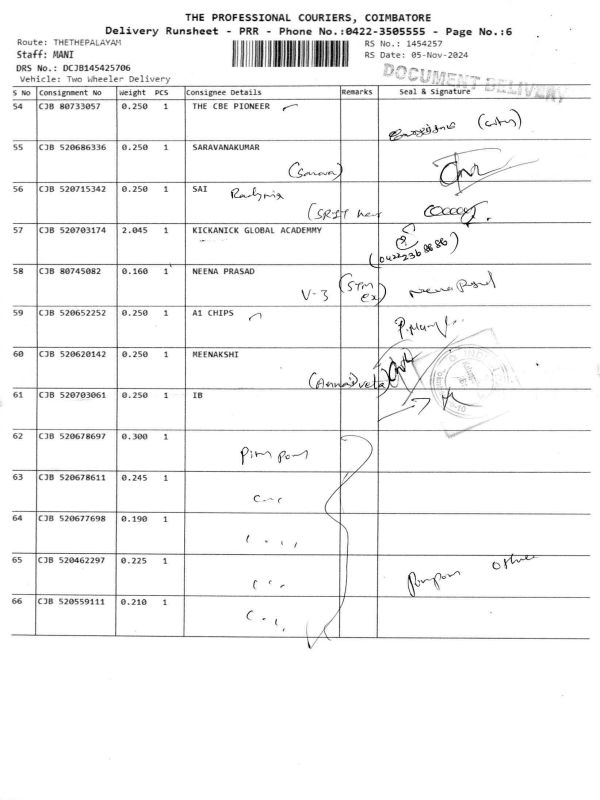 THE PROFESSIONAL COURIERS, COIMBATORE
Delivery Runsheet - PRR - Phone No.:0422-3505555 - Page No.:6
Route: THETHEPALAYAM
RS No.: 1454257
Staff: MANI
RS Date: 05-Nov-2024
DRS No.: DCJB145425706
Vehicle: Two Wheeler Delivery
DOCUMENT DELIVERY
S No Consignment No Weight PCS Consignee Details Remarks Seal & Signature
54 CJB 80733057 0.250 1 THE CBE PIONEER
55 CJB 520686336 0.250 1 SARAVANAKUMAR
(Sarava)
56 CJB 520715342 0.250 1 SAI
(SRIT
57 CJB 520703174 2.045 1 KICKANICK GLOBAL ACADEMMY
58 CJB 80745082 0.160 1 NEENA PRASAD
V-3 (STM Ex)
59 CJB 520652252 0.250 1 A1 CHIPS
60 CJB 520620142 0.250 1 MEENAKSHI
61 CJB 520703061 0.250 1 IB
62 CJB 520678697 0.300 1
63 CJB 520678611 0.245 1
64 CJB 520677698 0.190 1
65 CJB 520462297 0.225 1
66 CJB 520559111 0.210 1